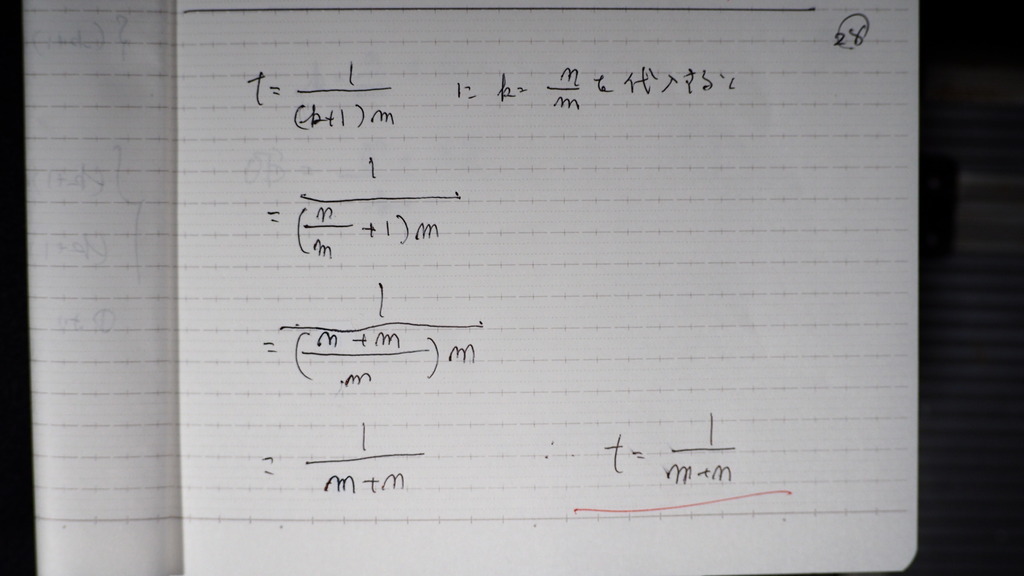 28
t = 1/((k+1)m) に k = n/m を代入すると
= 1/((n/m + 1)m)
= 1/(((n+m)/m)m)
= 1/(m+n) ∴ t = 1/(m+n)